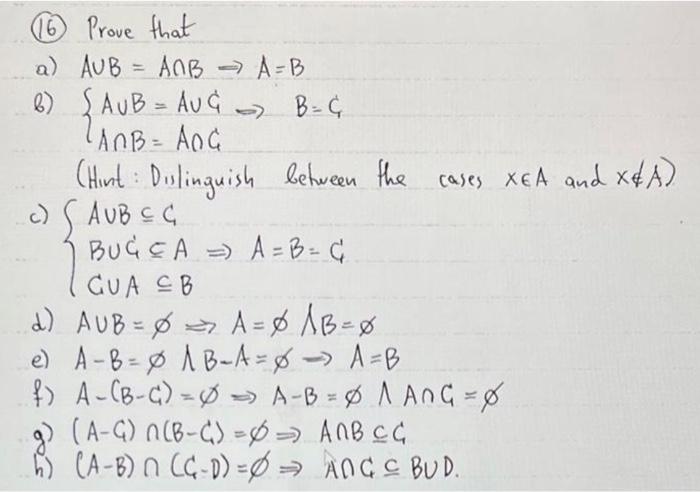 (16) Prove that
a) A∪B = A∩B ⇒ A=B
b) { A∪B = A∪C ⇒ B=C
A∩B = A∩C
(Hint : Distinguish between the cases x∈A and x∉A)
c) { A∪B ⊆ C
B∪C ⊆ A ⇒ A=B=C
C∪A ⊆ B
d) A∪B = ∅ ⇒ A=∅ ∧ B=∅
e) A-B=∅ ∧ B-A=∅ ⇒ A=B
f) A-(B-C)=∅ ⇒ A-B=∅ ∧ A∩C=∅
g) (A-C)∩(B-C)=∅ ⇒ A∩B⊆C
h) (A-B)∩(C-D)=∅ ⇒ A∩C⊆B∪D.